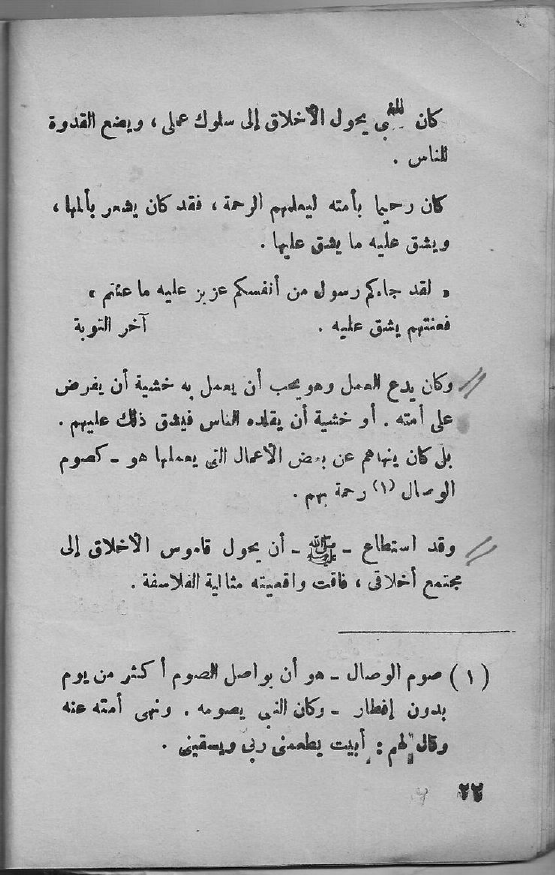 كان النبي يحول الأخلاق إلى سلوك عملى ، ويضع القدوة
للناس .
كان رحيما بأمته ليعلمهم الرحمة ، فقد كان يشعر بألمها ،
ويشق عليه ما يشق عليها .
« لقد جاءكم رسول من أنفسكم عزيز عليه ما عنتم »
فعنتهم يشق عليه . آخر التوبة
وكان يدع العمل وهو يحب أن يعمل به خشية أن يفرض
على أمته . أو خشية أن يقلده الناس فيشق ذلك عليهم .
بل كان ينهاهم عن بعض الأعمال التى يعملها هو ـ كصوم
الوصال (١) رحمة بهم .
وقد استطاع ـ ﷺ ـ أن يحول قاموس الأخلاق إلى
مجتمع أخلاقى ، فاقت واقعيته مثالية الفلاسفة .
(١) صوم الوصال ـ هو أن يواصل الصوم أكثر من يوم
بدون إفطار ـ وكان النبي يصومه . ونهى أمته عنه
وقال لهم : أبيت يطعمنى ربى ويسقينى .
٢٢